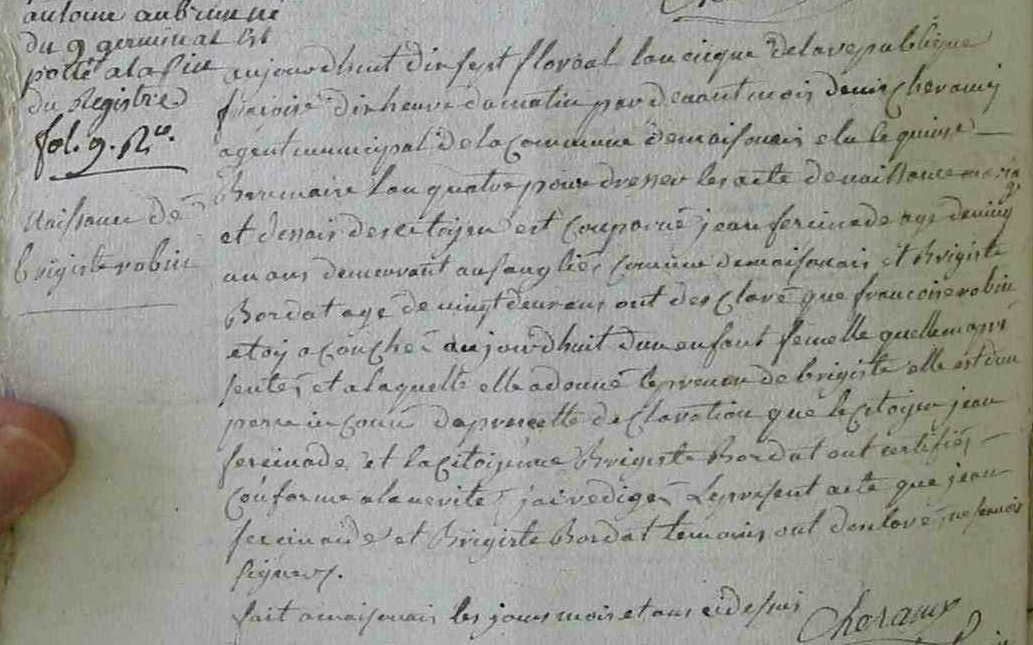 antoine aubrun né
du 9 germinal
porté a la fin
du Registre
fol. 9. Rto.
Naissance de
brigiste robin
aujourdhuit dix sept floréal lan cinque de la republique
a dix heure du matin par devant mois denis Cheramy
agent municipal de la Commune de maisonais elu le quinse
Brumaire lan quatre pour dresser les acte de naissance mariage
et dessais des citoyen est comparue jean fereinade age de ving
un ans demeurant au sanglié comune de maisonais et Brigiste
Bordat agé de vingt deux ans ont desclaré que francoise robin
etoy acouché aujourdhuit dun enfant femelle quelle mon pres
sentés, et a laquelle elle a donné le prenom de brigiste elle est dun
perre inconu dapres cette desclaration que le citoyen jean
fereinade et la citoyenne Brigiste Bordat ont certifiés
conforme a la verite j'ai redigés le present acte que jean
fereinade et Brigiste Bordat temoins ont desclaré ne savoir
signers.
fait a maisonais les jours mois et ans cidessus
Cheramy